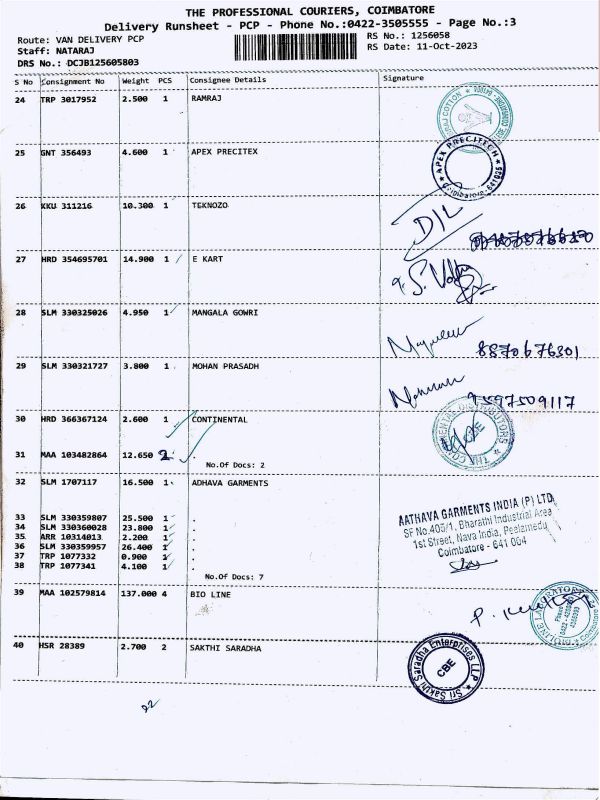 THE PROFESSIONAL COURIERS, COIMBATORE
Delivery Runsheet - PCP - Phone No.:0422-3505555 - Page No.:3
Route: VAN DELIVERY PCP RS No.: 1256058
Staff: NATARAJ RS Date: 11-Oct-2023
DRS No.: DCJB125605803
S No Consignment No Weight PCS Consignee Details Signature
24 TRP 3017952 2.500 1 RAMRAJ
25 GNT 356493 4.600 1 APEX PRECITEX
APEX PRECITECH
Coimbatore-641025
26 KKU 311216 10.300 1 TEKNOZO
D/L
27 HRD 354695701 14.900 1 E KART
28 SLM 330325026 4.950 1 MANGALA GOWRI
8870676301
29 SLM 330321727 3.800 1 MOHAN PRASADH
9597509117
30 HRD 366367124 2.600 1 CONTINENTAL
31 MAA 103482864 12.650 2
No.Of Docs: 2
32 SLM 1707117 16.500 1 ADHAVA GARMENTS
33 SLM 330359807 25.500 1 .
34 SLM 330360028 23.800 1 .
35 ARR 10314013 2.200 1 .
36 SLM 330359957 26.400 1 .
37 TRP 1077332 0.900 1 .
38 TRP 1077341 4.100 1 .
No.Of Docs: 7
AATHAVA GARMENTS INDIA (P) LTD
SF No.405/1, Bharathi Industrial Area
1st Street, Nava India, Peelamedu
Coimbatore - 641 004
39 MAA 102579814 137.000 4 BIO LINE
40 HSR 28389 2.700 2 SAKTHI SARADHA
Sri Sakthi Saradha Enterprises LLP
CBE